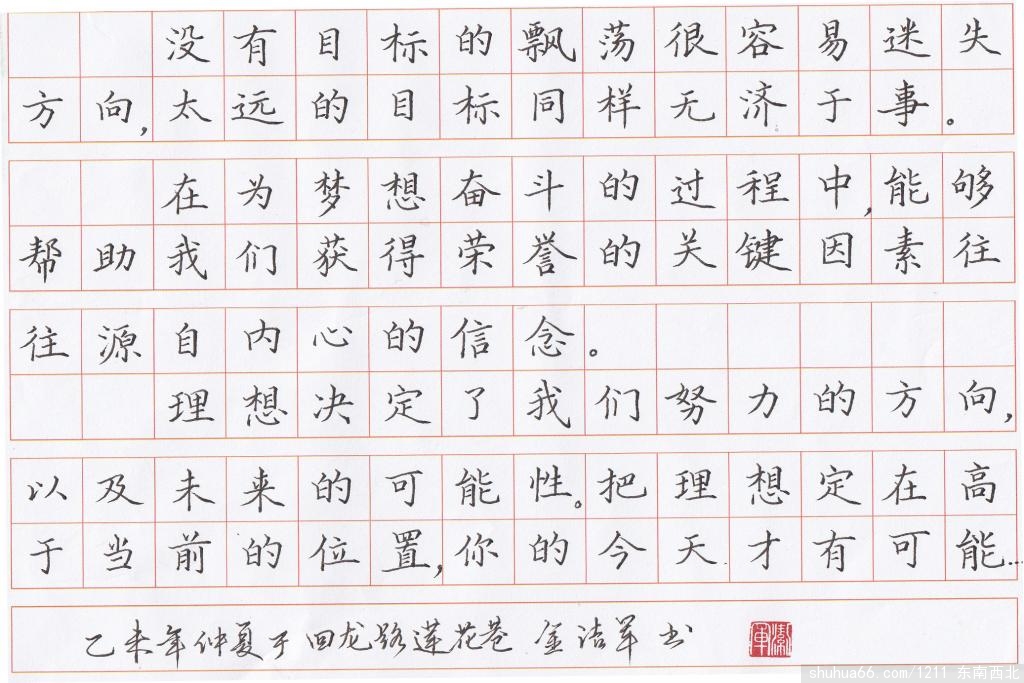 没有目标的飘荡很容易迷失
方向,太远的目标同样无济于事。
在为梦想奋斗的过程中,能够
帮助我们获得荣誉的关键因素往
往源自内心的信念。
理想决定了我们努力的方向,
以及未来的可能性。把理想定在高
于当前的位置,你的今天才有可能...
乙未年仲夏于回龙路莲花巷 金洁军书
shuhua66.com/1211 东南西北